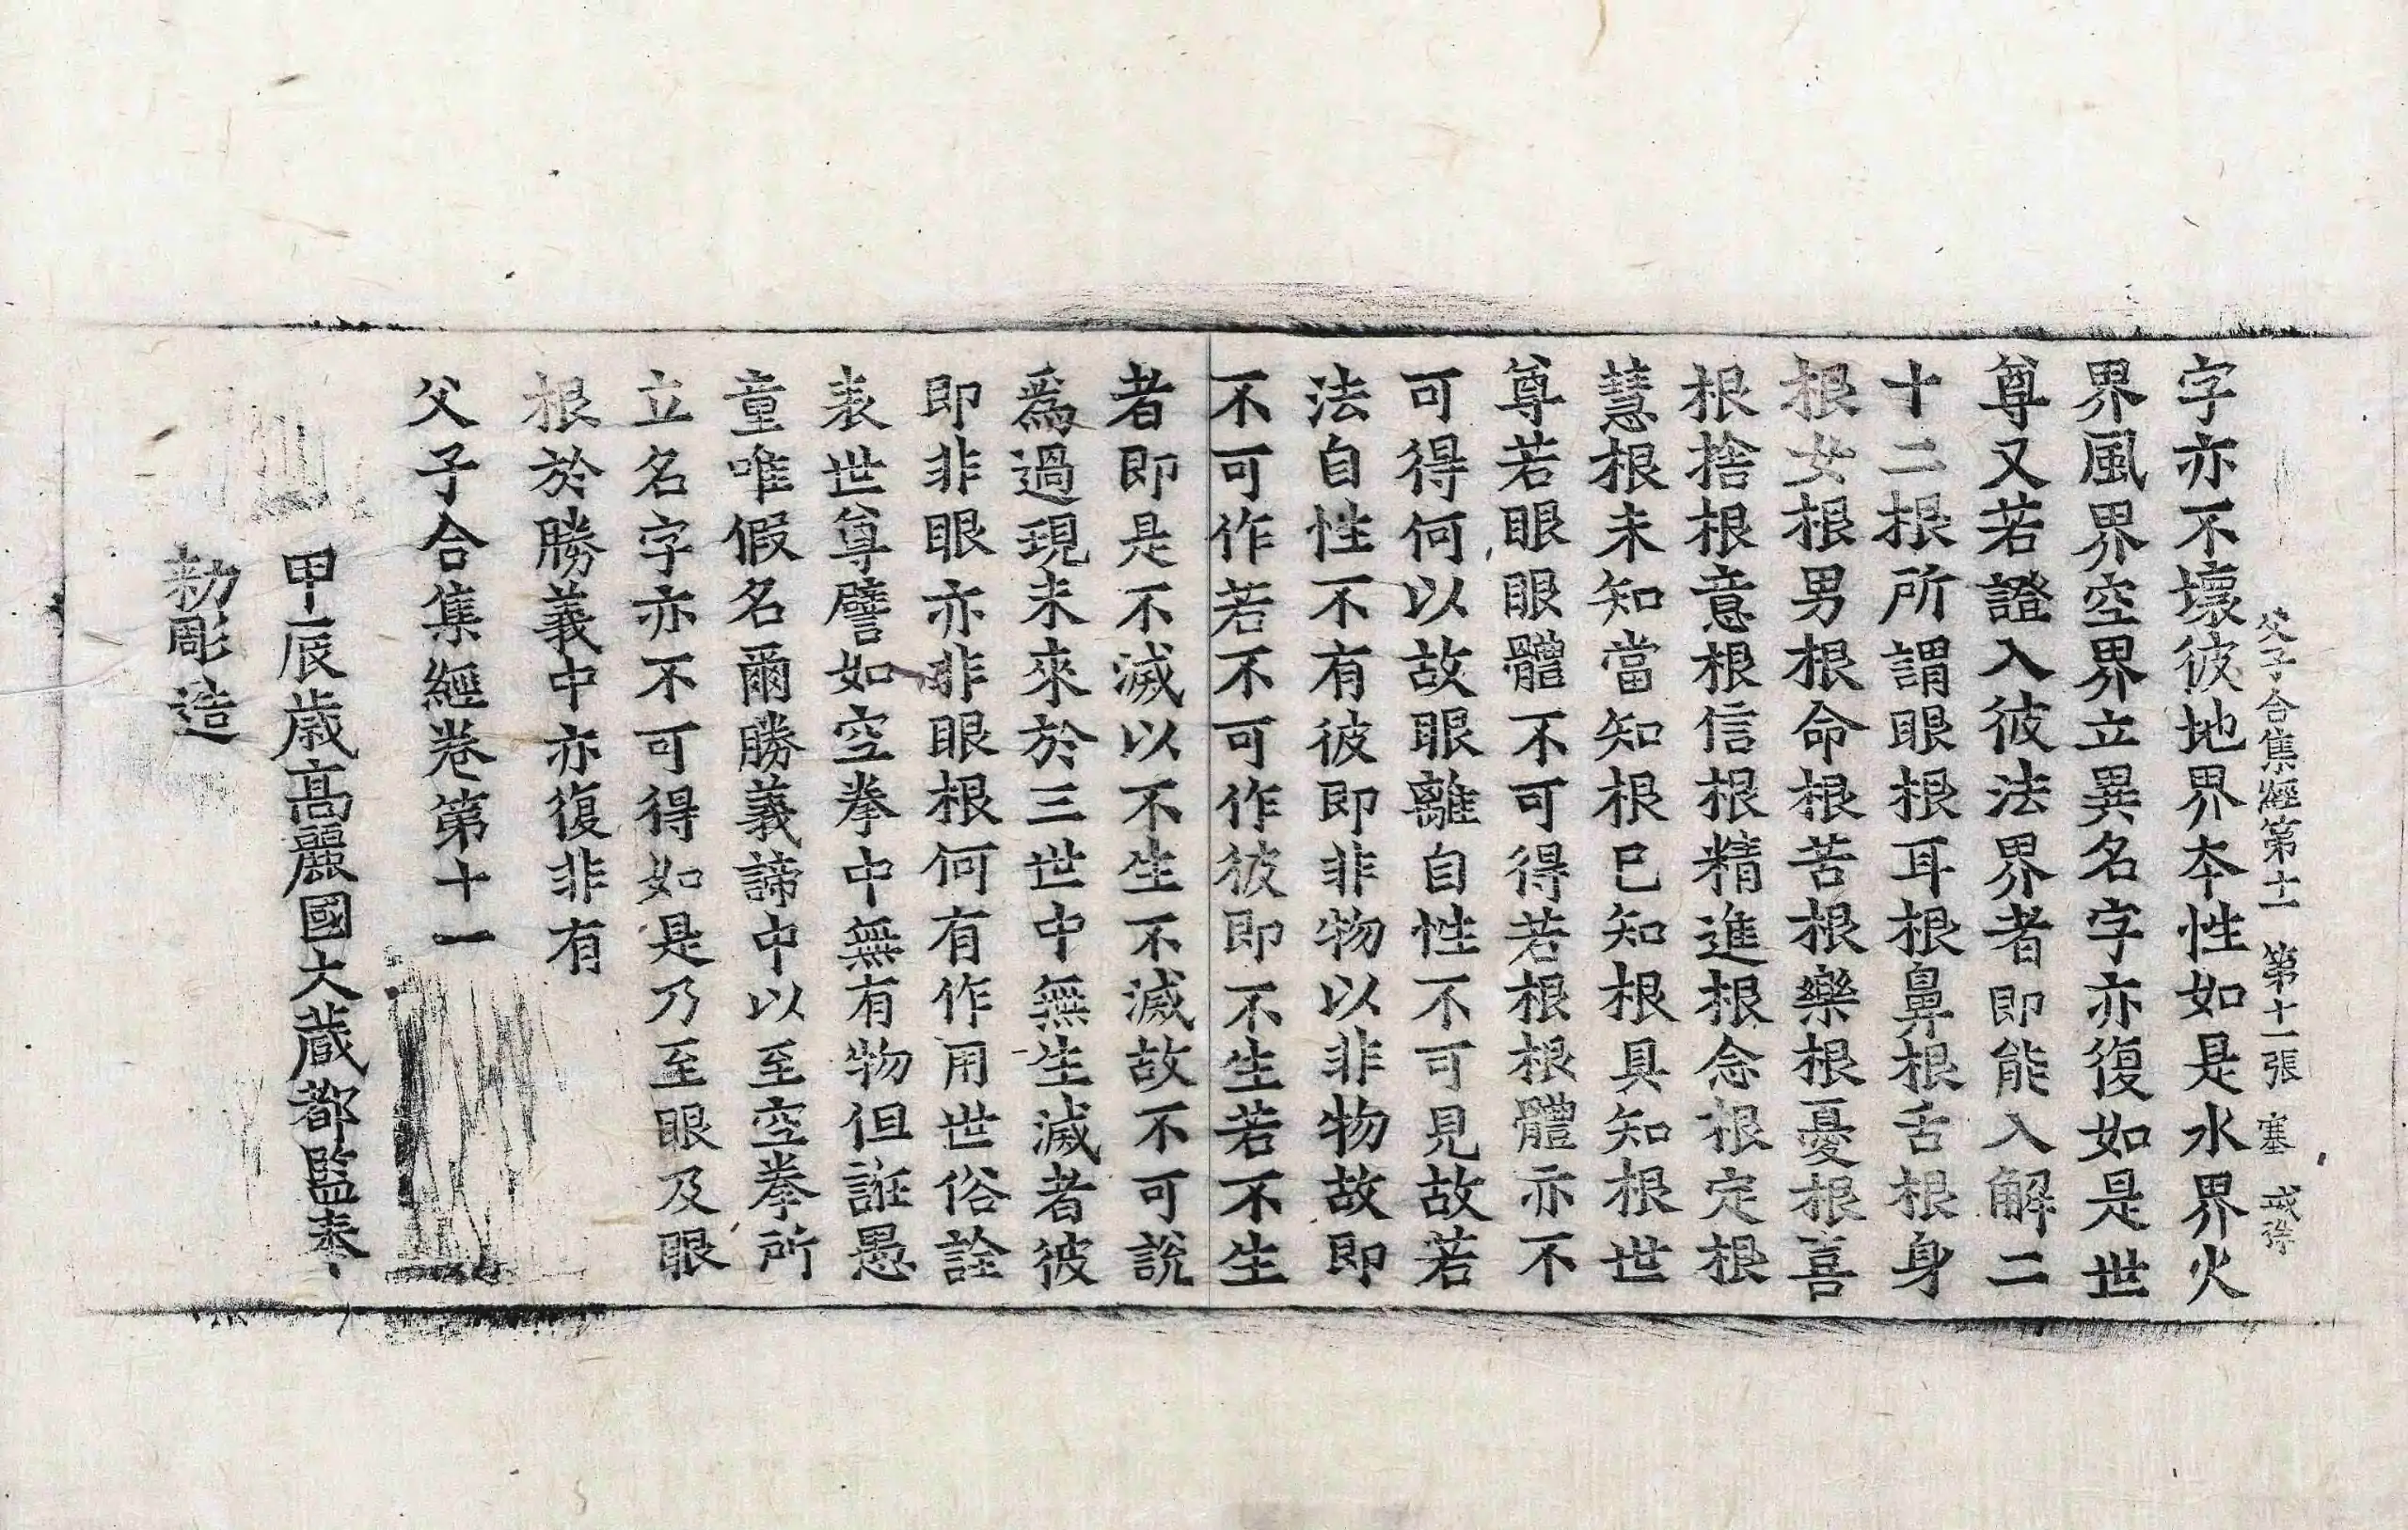 父子合集經第十一 第十一張 塞
字亦不壞彼地界本性如是水界火
界風界空界立異名字亦復如是世
尊又若證入彼法界者即能入解二
十二根所謂眼根耳根鼻根舌根身
根女根男根命根苦根樂根憂根喜
根捨根意根信根精進根念根定根
慧根未知當知根已知根具知根世
尊若眼眼體不可得若根根體亦不
可得何以故眼離自性不可見故若
法自性不有彼即非物以非物故即
不可作若不可作彼即不生若不生
者即是不滅以不生不滅故不可說
爲過現未來於三世中無生滅者彼
即非眼亦非眼根何有作用世俗詮
表世尊譬如空拳中無有物但誑愚
童唯假名爾勝義諦中以至空拳所
立名字亦不可得如是乃至眼及眼
根於勝義中亦復非有
父子合集經卷第十一
甲辰歲高麗國大藏都監奉
勑彫造